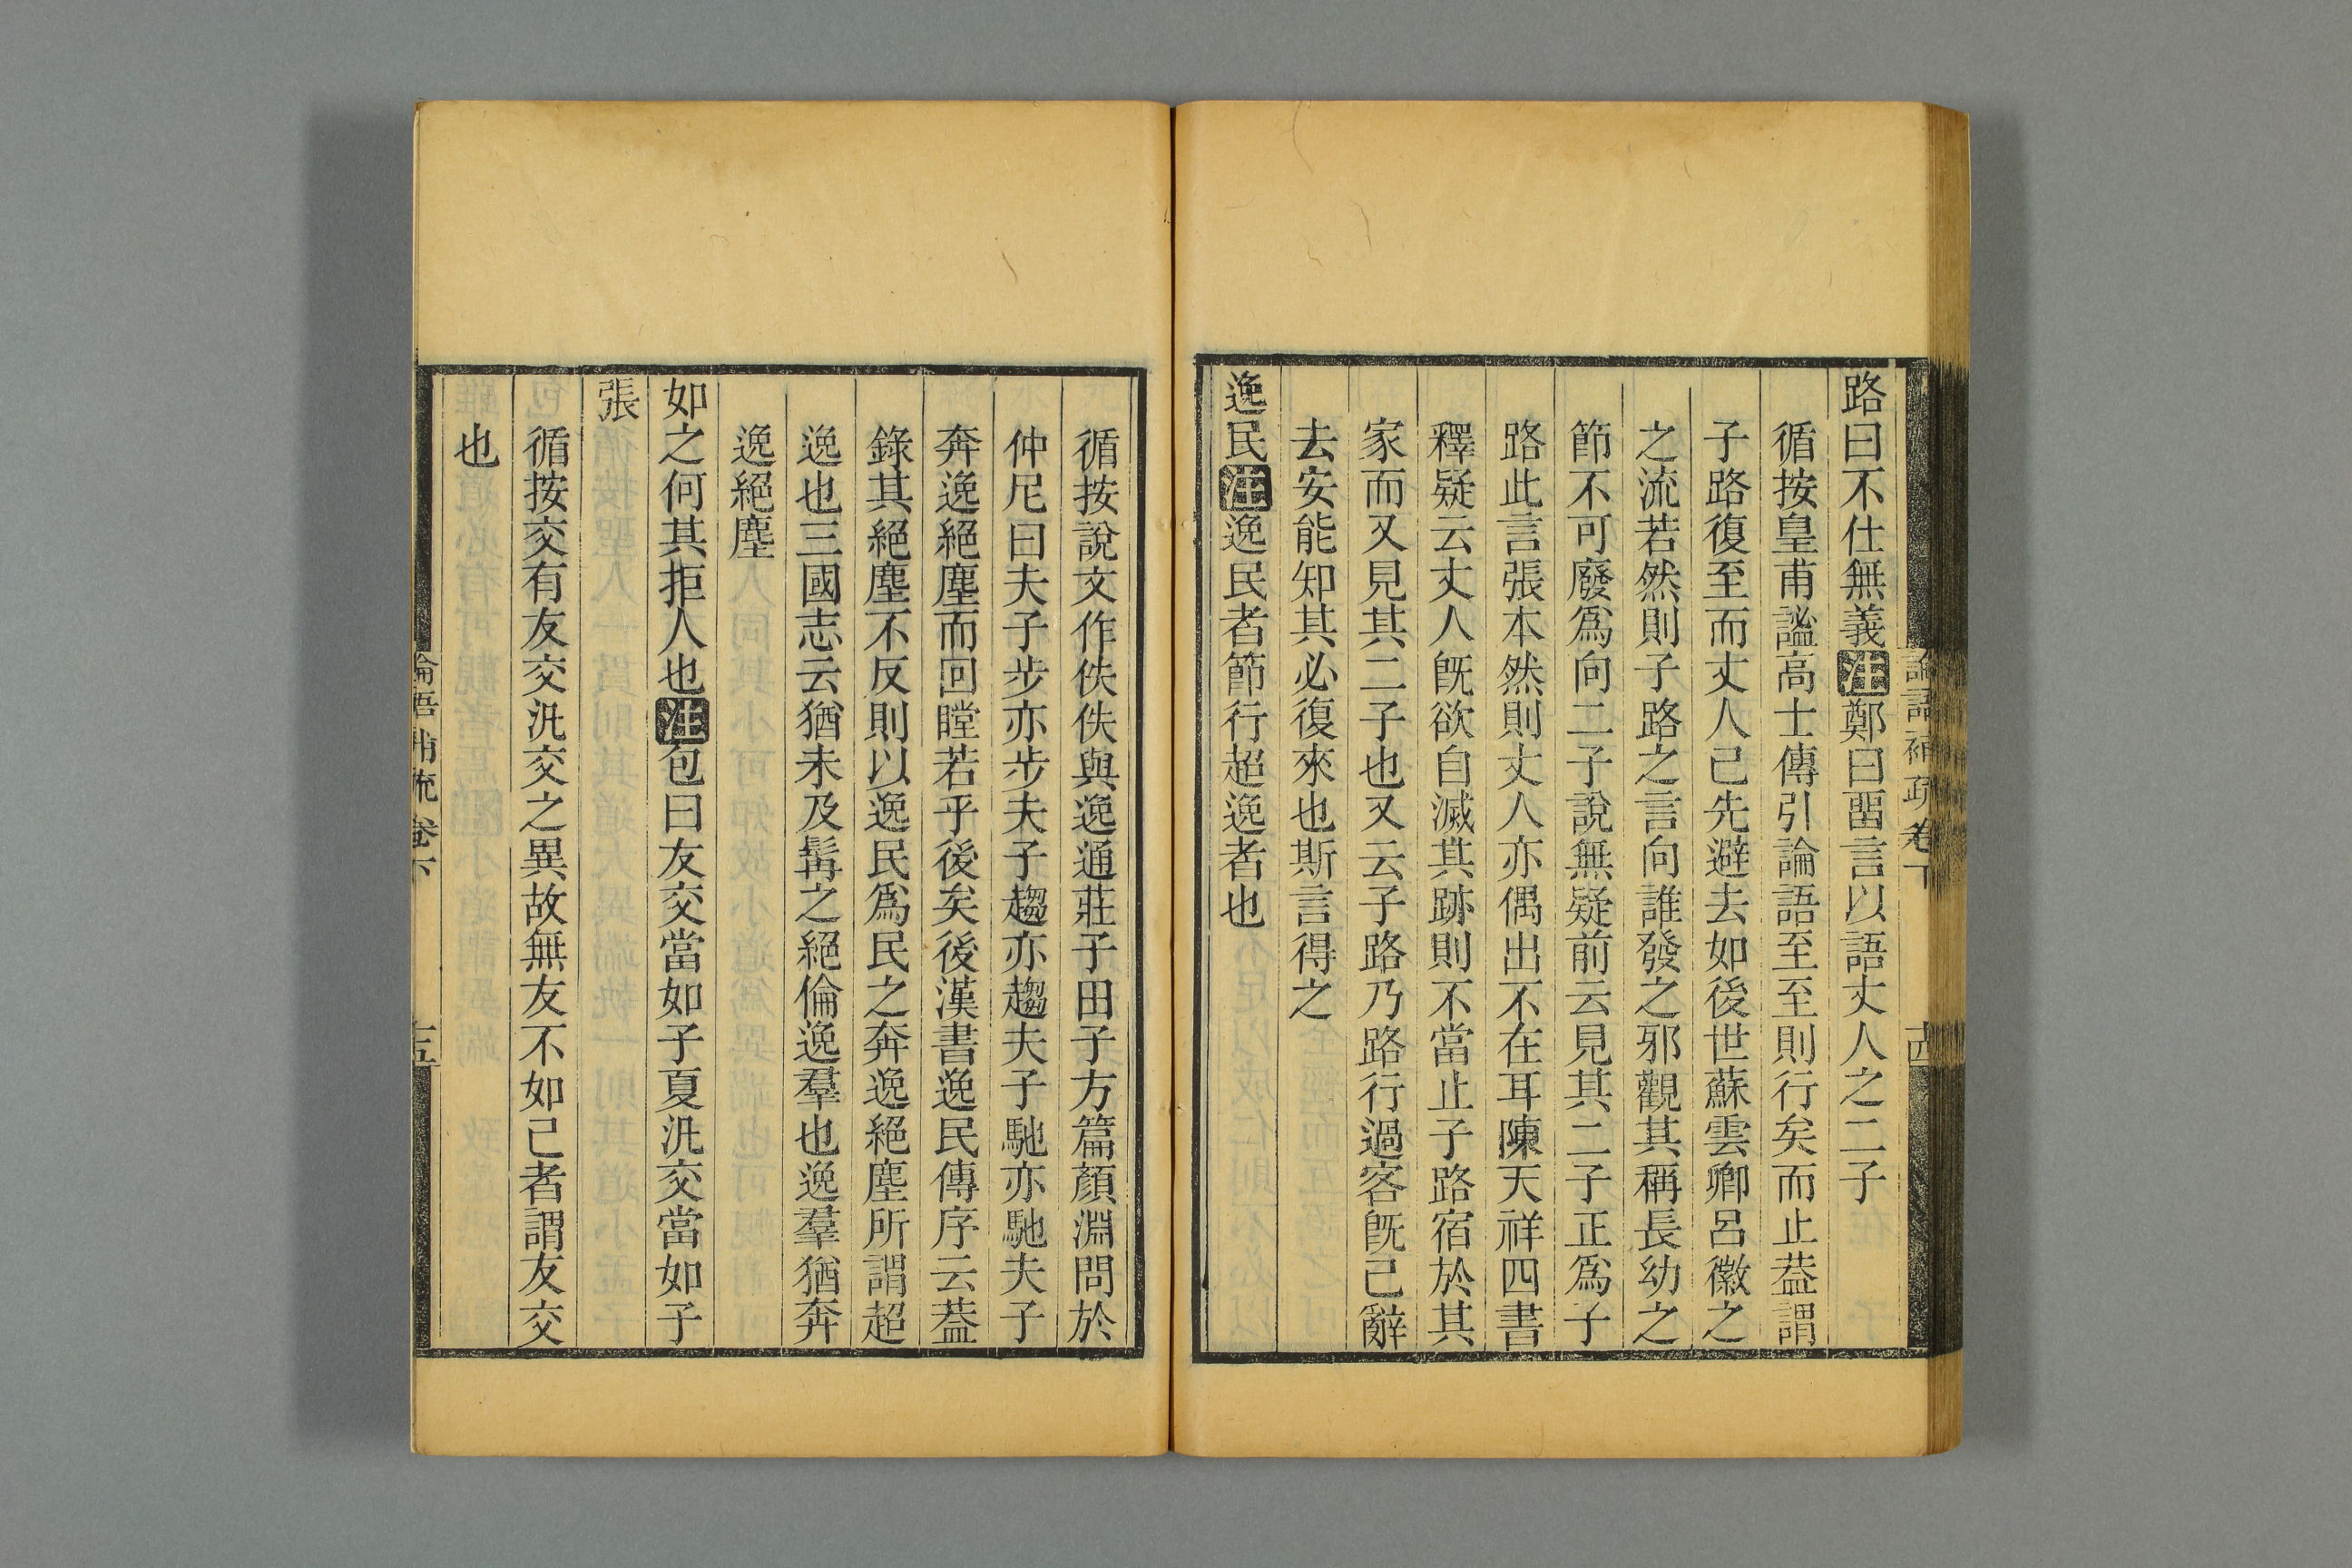 論語補疏卷下
十四
路曰不仕無義注鄭曰畱言以語丈人之二子
循按皇甫謐高士傳引論語至至則行矣而止葢謂
子路復至而丈人己先避去如後世蘇雲卿呂徽之
之流若然則子路之言向誰發之邪觀其稱長幼之
節不可廢爲向二子說無疑前云見其二子正爲子
路此言張本然則丈人亦偶出不在耳陳天祥四書
釋疑云丈人旣欲自滅其跡則不當止子路宿於其
家而又見其二子也又云子路乃路行過客旣己辭
去安能知其必復來也斯言得之
逸民注逸民者節行超逸者也
循按說文作佚佚與逸通莊子田子方篇顏淵問於
仲尼曰夫子步亦步夫子趨亦趨夫子馳亦馳夫子
奔逸絕塵而回瞠若乎後矣後漢書逸民傳序云葢
錄其絕塵不反則以逸民爲民之奔逸絕塵所謂超
逸也三國志云猶未及髯之絕倫逸羣也逸羣猶奔
逸絕塵
如之何其拒人也注包曰友交當如子夏汎交當如子
張
循按交有友交汎交之異故無友不如己者謂友交
也
論語補疏卷下
十五